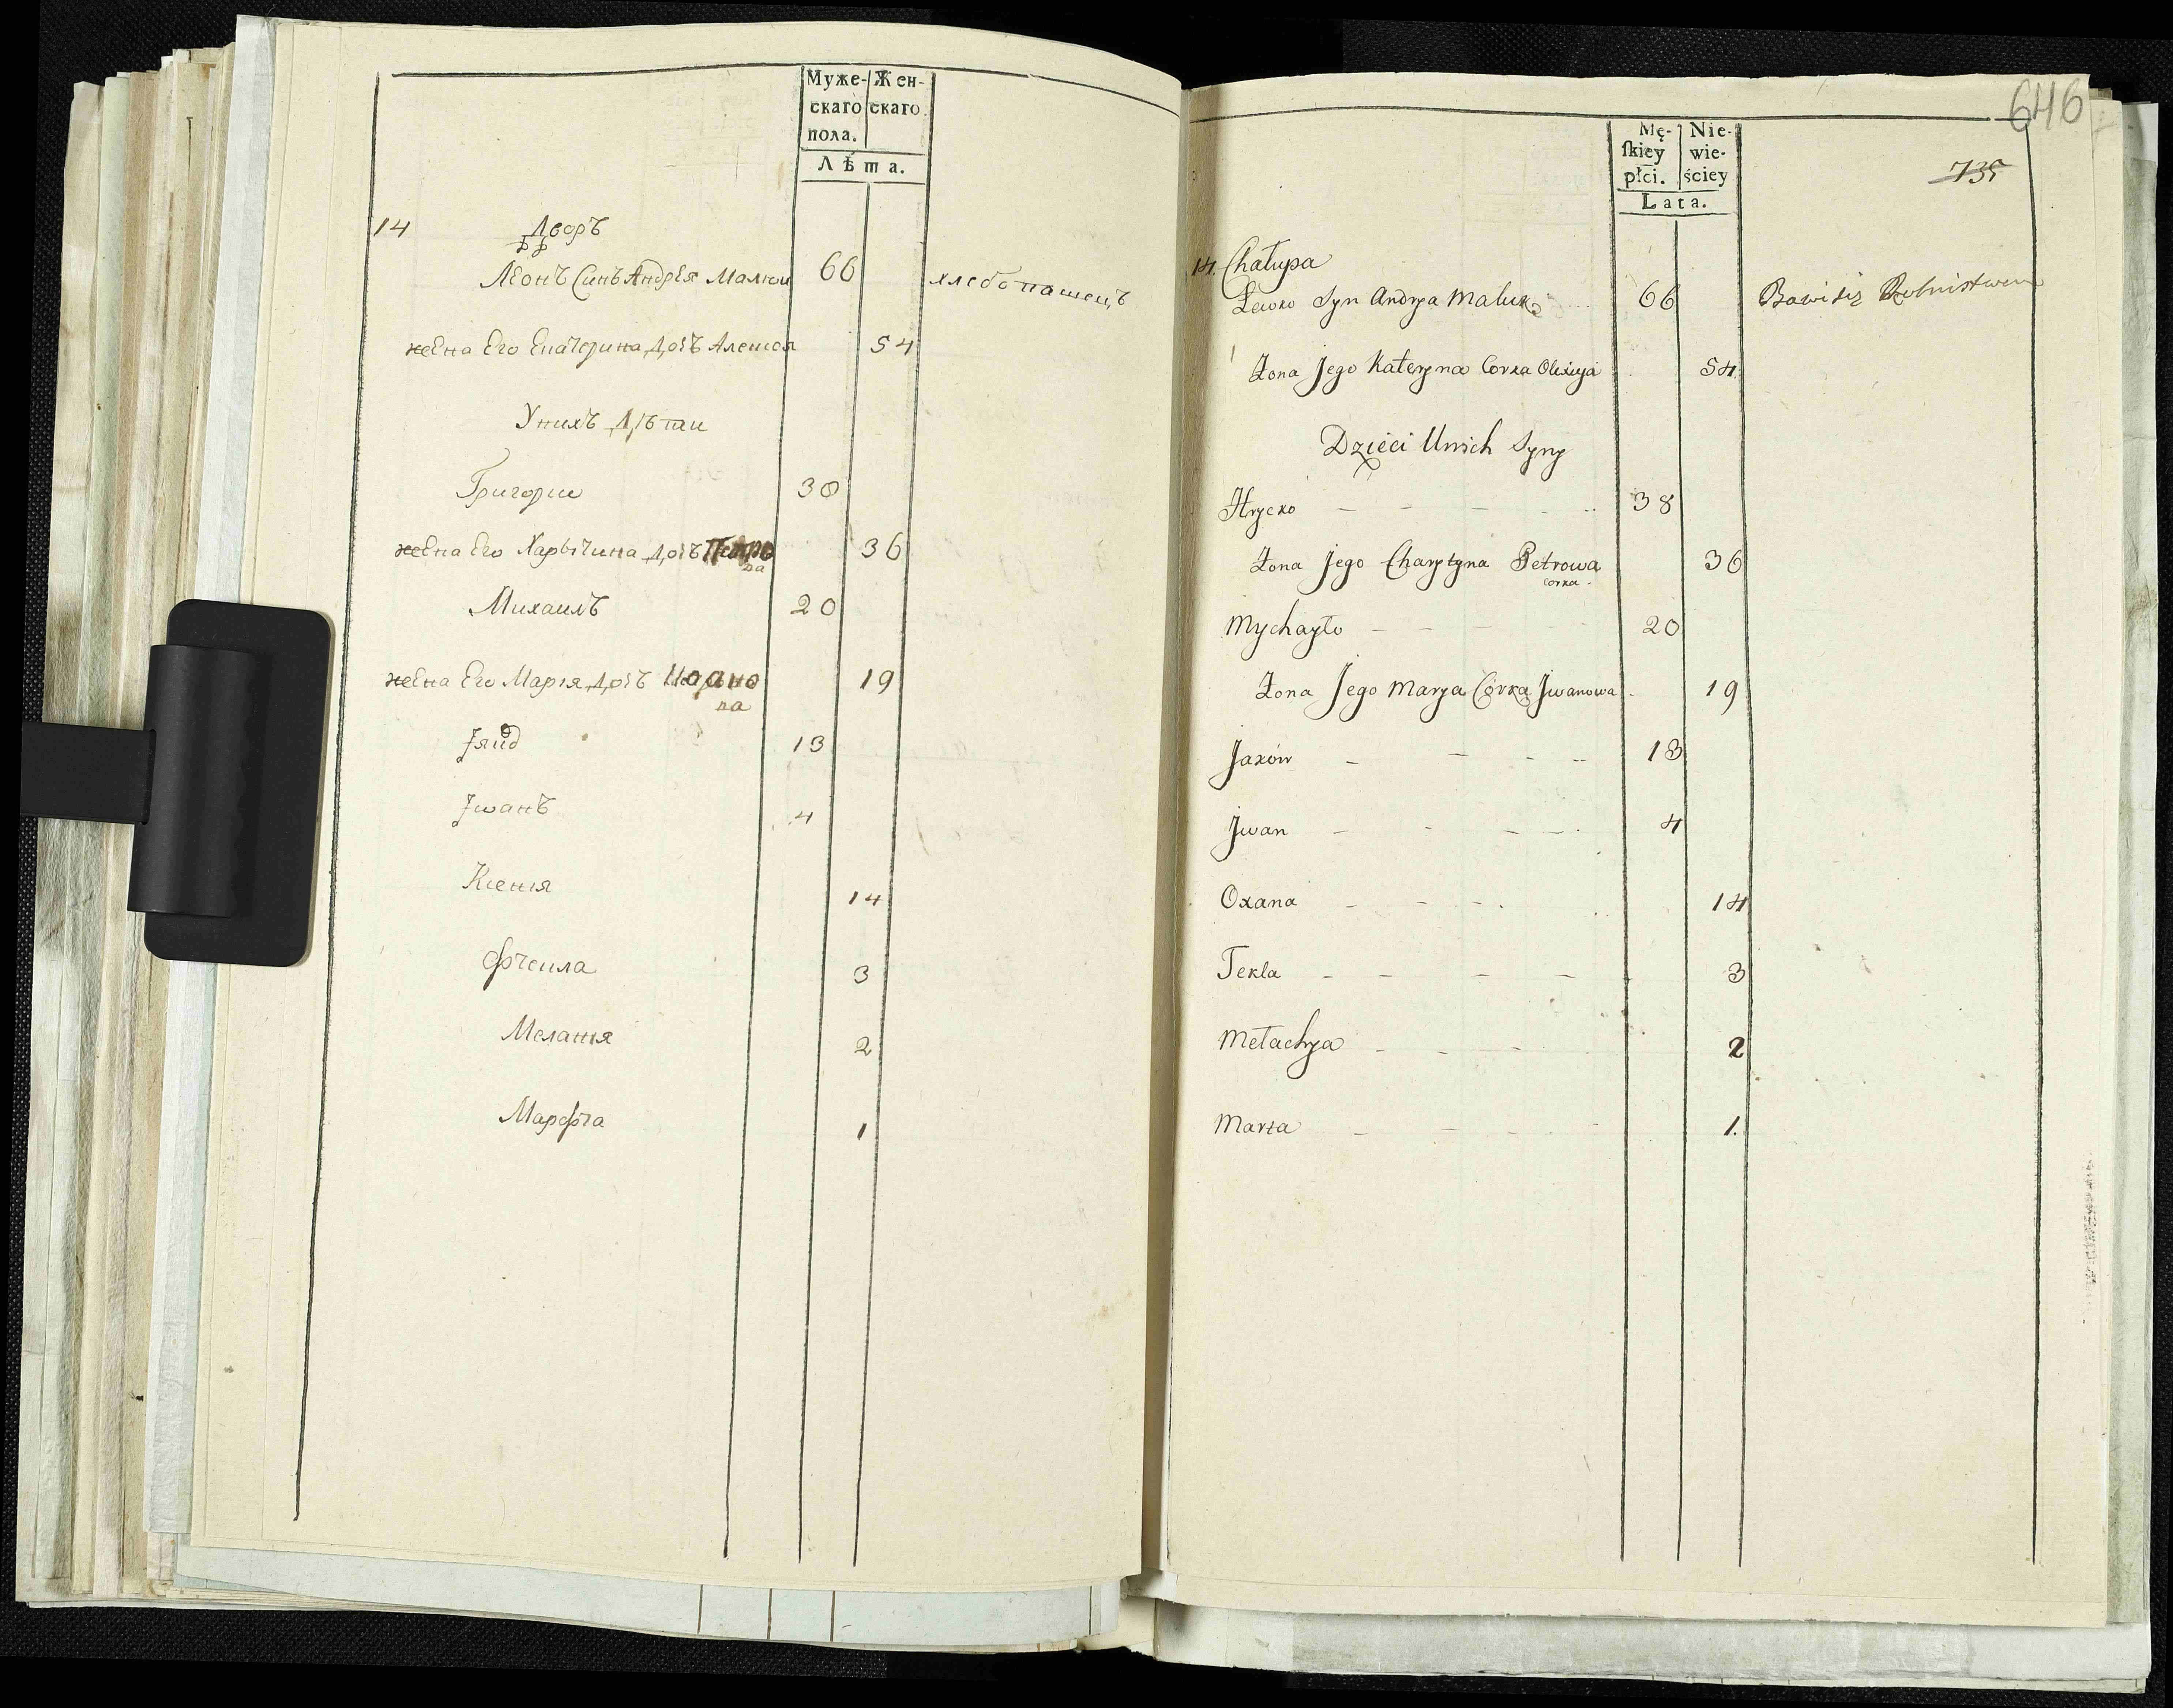 Муже- Жен-
скаго скаго
пола.
Лѣта.
14 Дворъ
Леонъ Синъ Андрея Малюи 66 хлебопашецъ
жена Его Екатерина дочъ Алексея 54
Унихъ дѣти
Григории 38
жена Его Харытина дочъ Петро 36
ва
Михаилъ 20
жена Его Мария дочъ Иоано 19
ва
13
Jwанъ 4
Ксения 14
Фтекла 3
Мелания 2
Марфта 1
646
Mę- Nie-
skiey wie-
płci. ściey
Lata.
735
14. Chałupa
Lewko Syn Andrya Maluk 66 Bawi się Rolnistwem
Żona Jego Kateryna Corka Olexiya 54
Dzieci Unich Syny
Hrycko 38
Żona Jego Charytyna Petrowa 36
corka
Mychayło 20
Żona Jego Marya Córka Jwanowa 19
Jaków 13
Jwan 4
Oxana 14
Tekla 3
Mełachya 2
Marta 1.